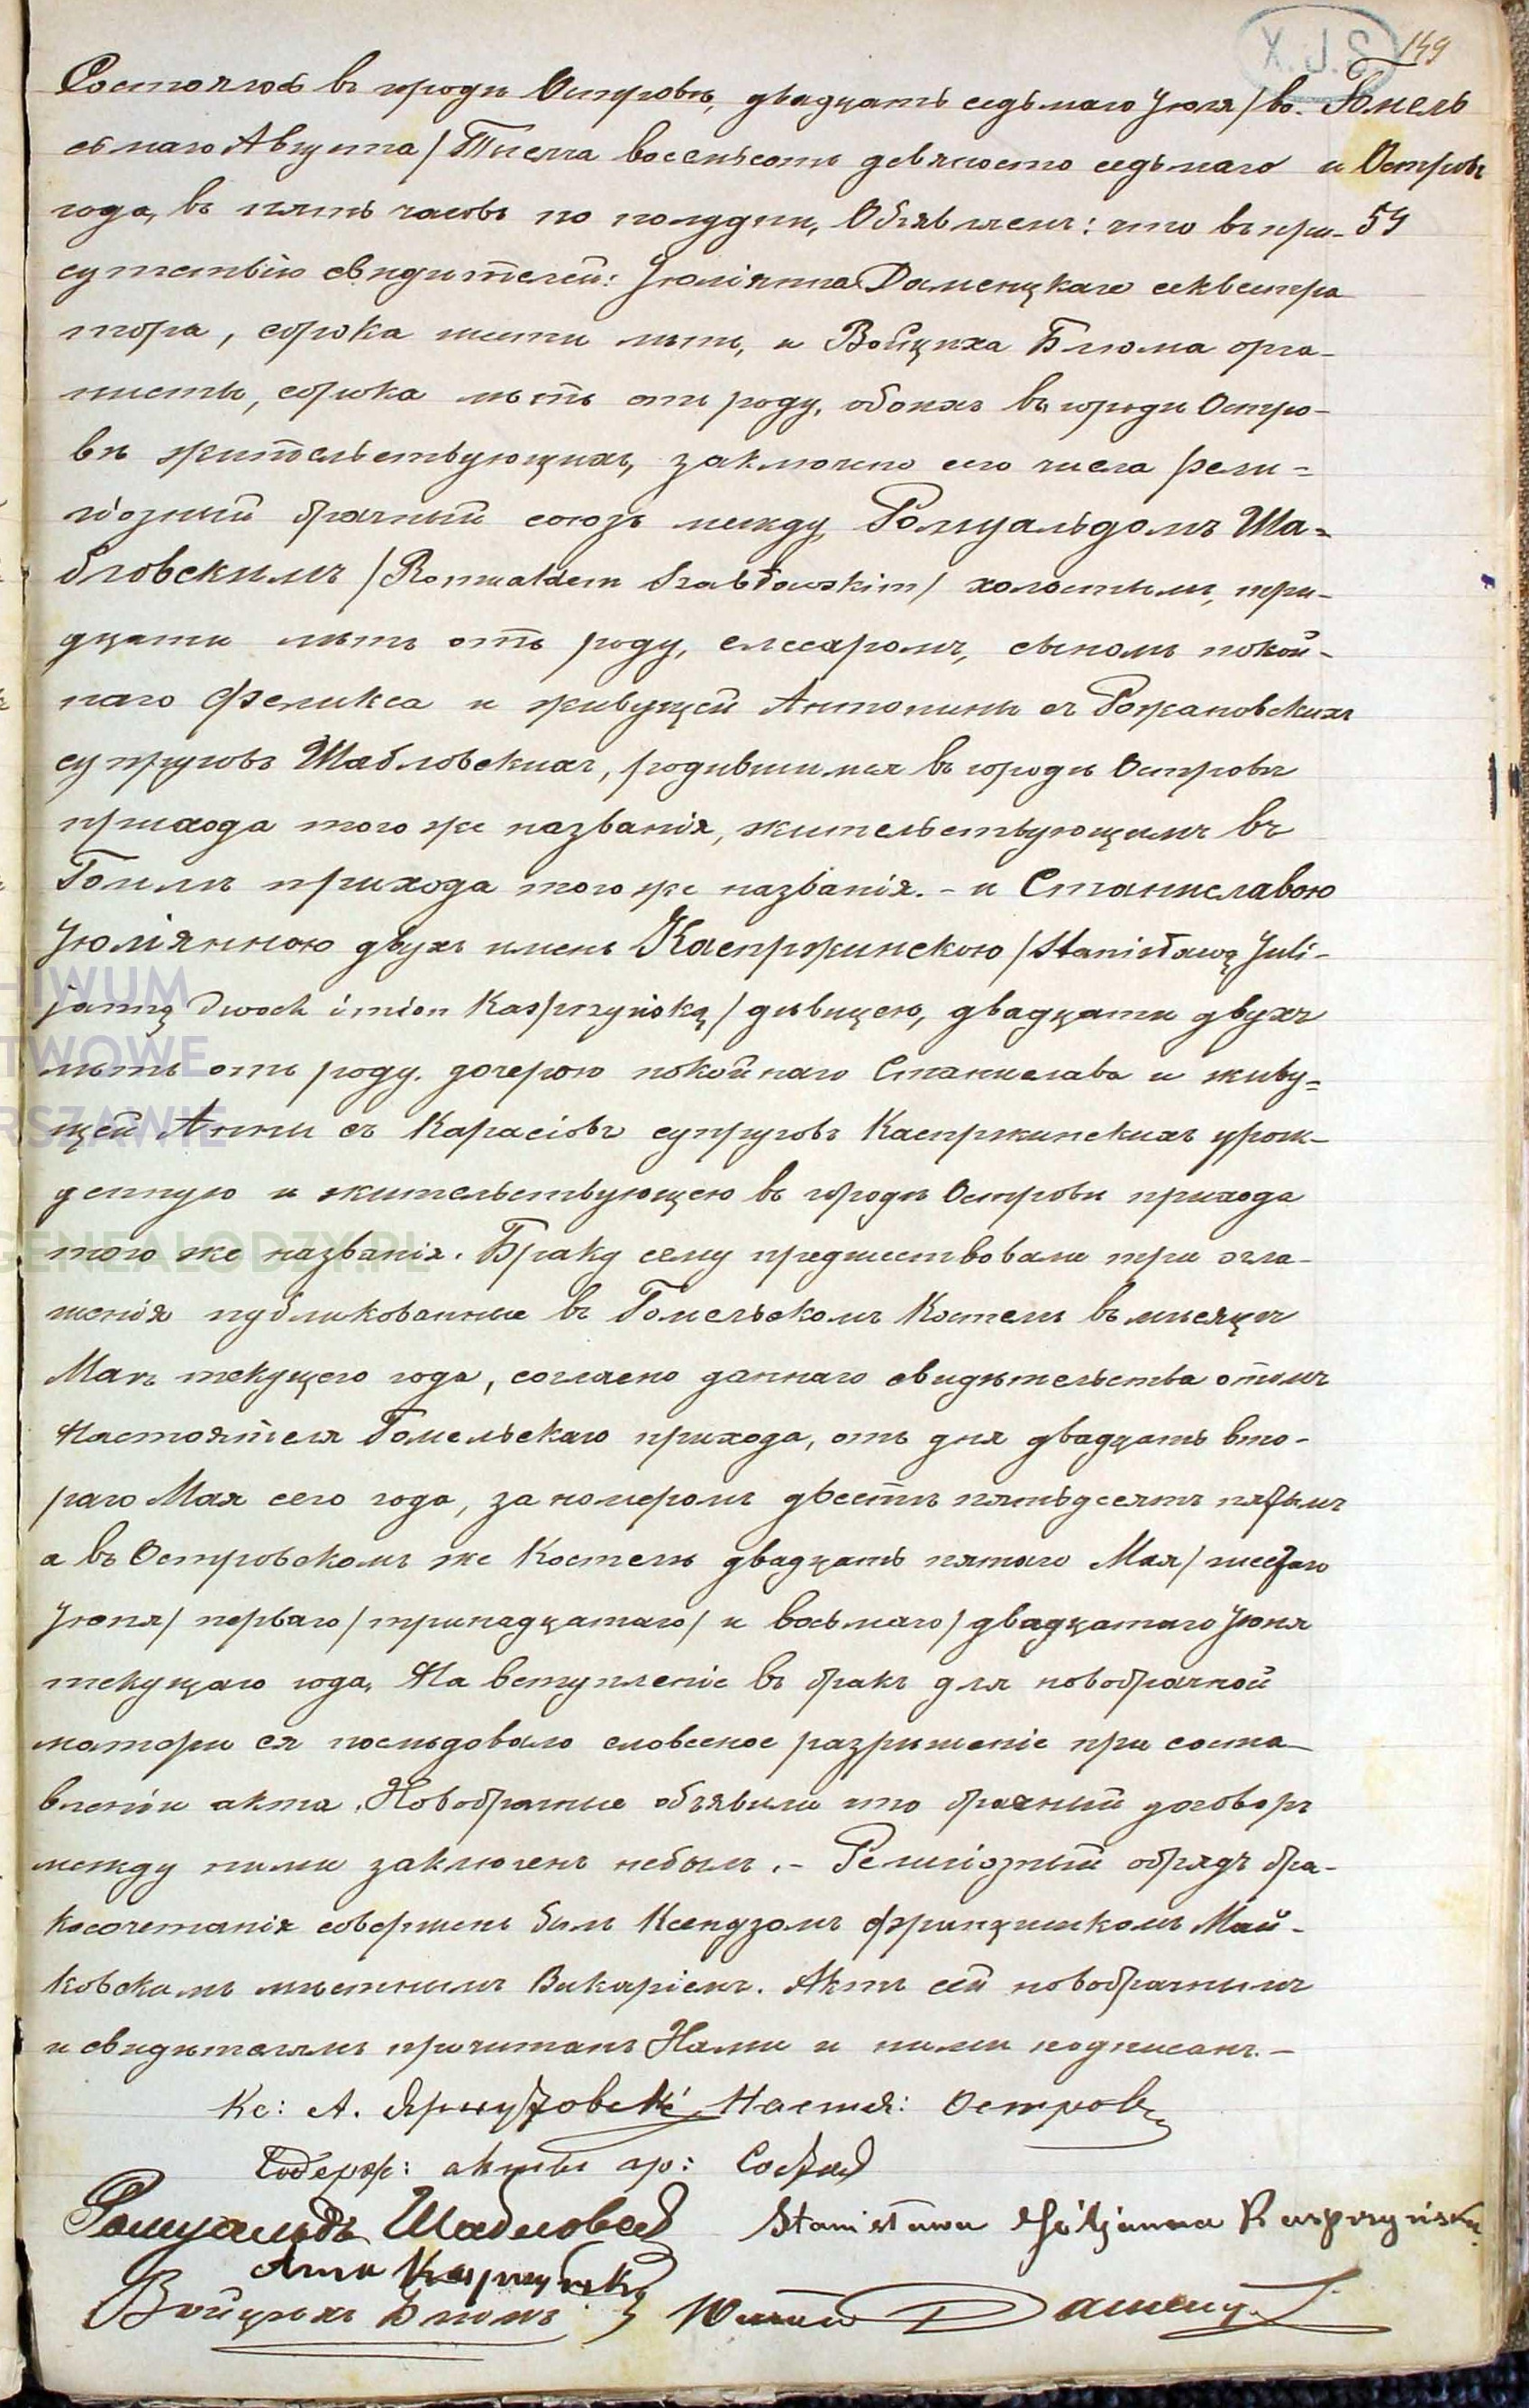 149
X. J. S.
Гомель
и Островъ
54
Состоялось въ городѣ Островѣ, двадцать седьмаго Іюля / во-
сьмаго Августа / Тысяча восемьсотъ девяносто седьмаго
года, въ пять часовъ по полудни, Объявляемъ: что въ при-
сутствію свидѣтелей: Юліяна Даменцкаго секвестра
тора, сорока шести лѣтъ, и Войцѣха Блюма орга-
нисты, сорока лѣтъ отъ роду, обоихъ въ городѣ Остро-
вѣ жительствующихъ, заключено сего числа рели=
гіозный брачный союзъ между Ромуальдомъ Ша=
бловскимъ / Romualdem Szabłowskim / холостымъ, три-
дцати лѣтъ отъ роду, слесаромъ, сыномъ покой-
наго Феликса и живущей Антонины съ Рожановскихъ
супруговъ Шабловскихъ, родившимся въ городѣ Островѣ
прихода того же названія, жительствующимъ въ
Гомлѣ прихода того же названія. - и Станиславою
Юліянною двухъ именъ Каспржинскою / Stanisławą Juli-
janną dwoch imion Kasprzyńską / дѣвицею, двадцати двухъ
лѣтъ отъ роду, дочерою покойнаго Станислава и живу=
щей Анны съ Карасіовъ супруговъ Каспржинскихъ урож-
денную и жительствующею въ городѣ Островѣ прихода
того же названія. Браку сему предшествовали три огла-
шенія публикованные въ Гомельскомъ Костелѣ въ мѣсяцѣ
Маѣ текущего года, согласно даннаго свидѣтельства отомъ
Настоятеля Гомельскаго прихода, отъ дня двадцать вто-
раго Мая сего года, за номеромъ двѣсти пятьдесятъ пятымъ
а въ Островскомъ же Костелѣ двадцать пятаго Мая / шестаго
Іюня / перваго / тринадцатаго / и восьмаго / двадцатаго Іюня
текущаго года, На вступленіе въ бракъ для новобрачной
матери ея послѣдовало словесное разрѣшеніе при соста-
вленіи акта. Новобрачные объявили что брачный договоръ
между ними заключенъ небылъ. - Религіозный обрядъ бра-
косочетанія совершенъ былъ Ксендзомъ Францишкомъ Май-
ковскимъ мѣстнымъ Викаріемъ. Актъ сей новобрачнымъ
и свидѣтелямъ прочитанъ Нами и ними подписанъ. -
Кс: А. Настоя: Островъ
Содерж: акты гр: Сост
Ромуальдъ Шабловскій Stanisława Julijanna Kasprzyńska
Anna Kasprzyńska
Войцѣхъ Блюмъ
ARCHIWUM
PAŃSTWOWE
WARSZAWIE
GENEALODZY.PL